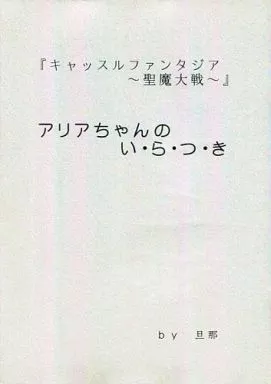 『キャッスルファンタジア
～聖魔大戦～』
アリアちゃんの
い・ら・つ・き
by 旦那